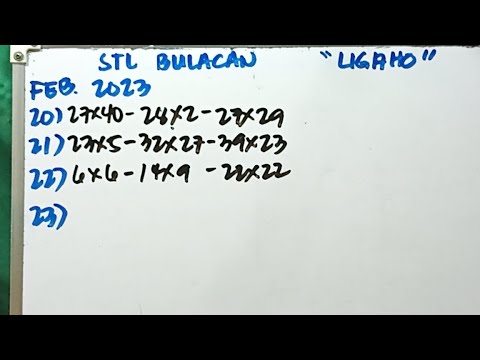 STL BULACAN "LIGAHO"
FEB. 2023
20) 27x40 - 28x2 - 27x29
21) 23x5 - 32x27 - 39x23
22) 6x6 - 14x9 - 22x22
23)